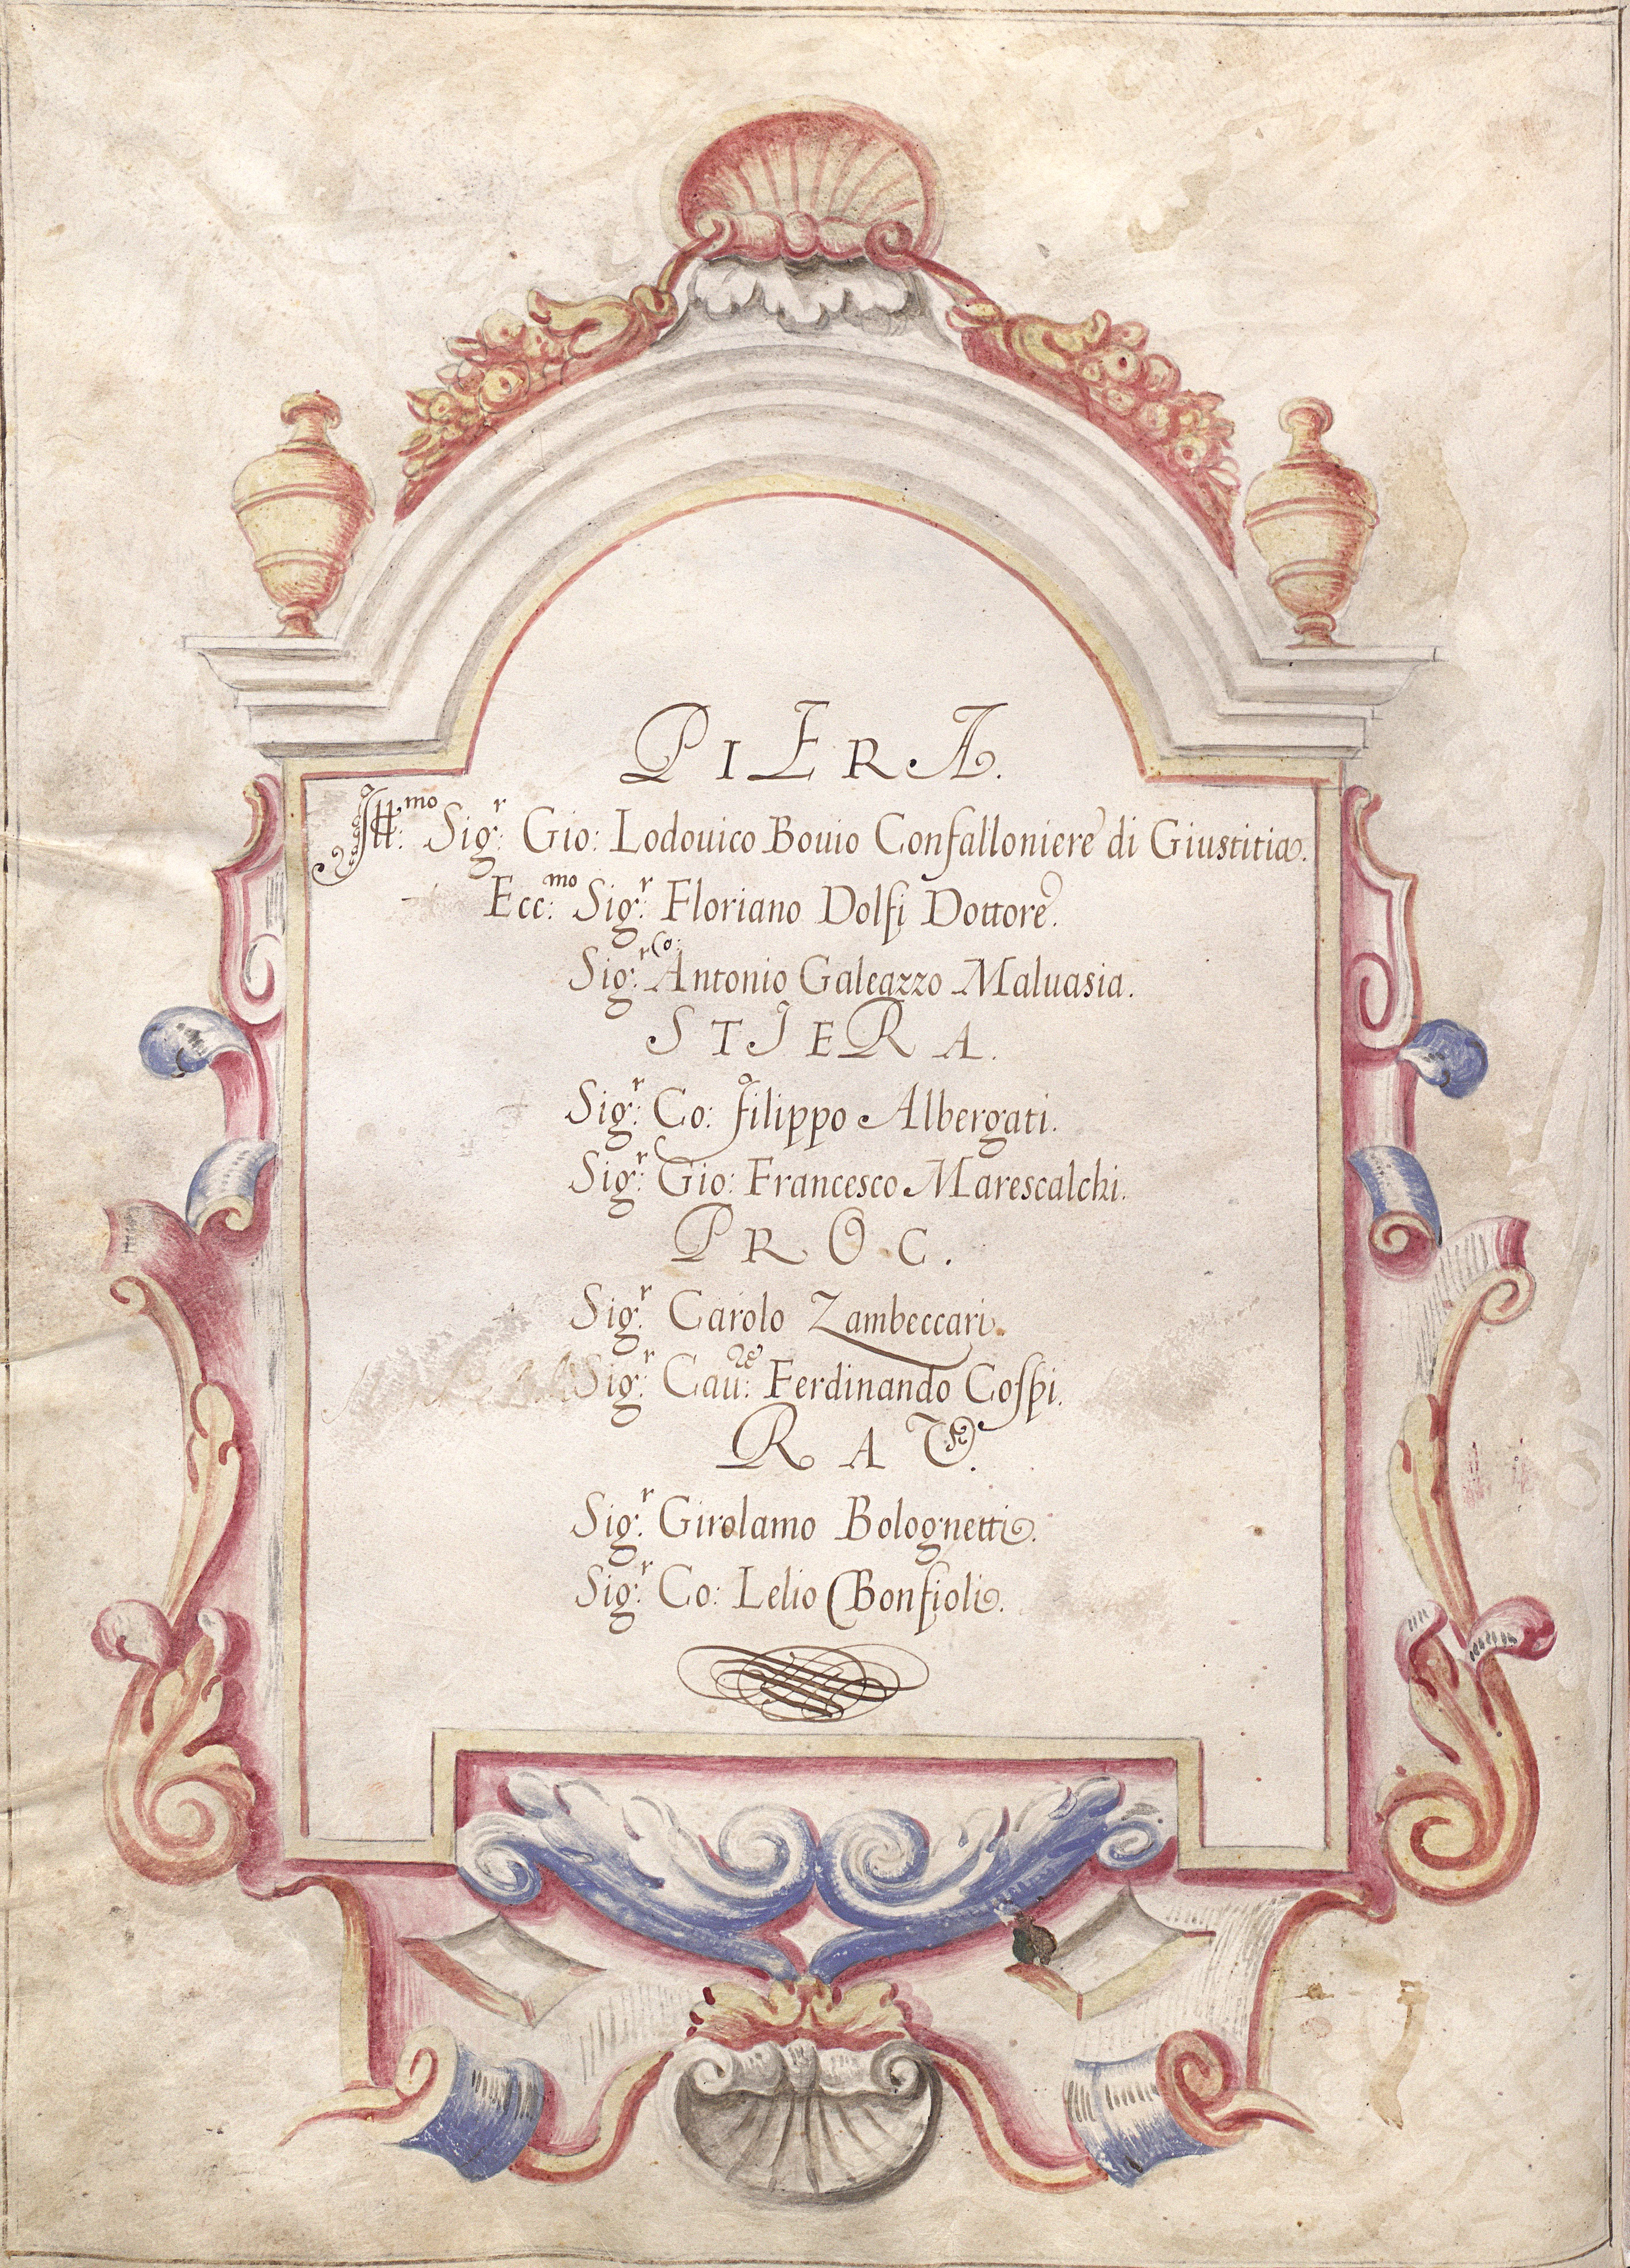 PIERA.
Ill:mo Sig:r Gio: Lodouico Bouio Confalloniere di Giustitia.
Ecc:mo Sig:r Floriano Dolfi Dottore.
Sig:r Co: Antonio Galeazzo Maluasia.
STIERA.
Sig:r Co: Filippo Albergati.
Sig:r Gio: Francesco Marescalchi.
PROC.
Sig:r Carolo Zambeccari.
Sig:r Cau:re Ferdinando Cospi.
RAV.
Sig:r Girolamo Bolognetti.
Sig:r Co: Lelio Bonfioli.